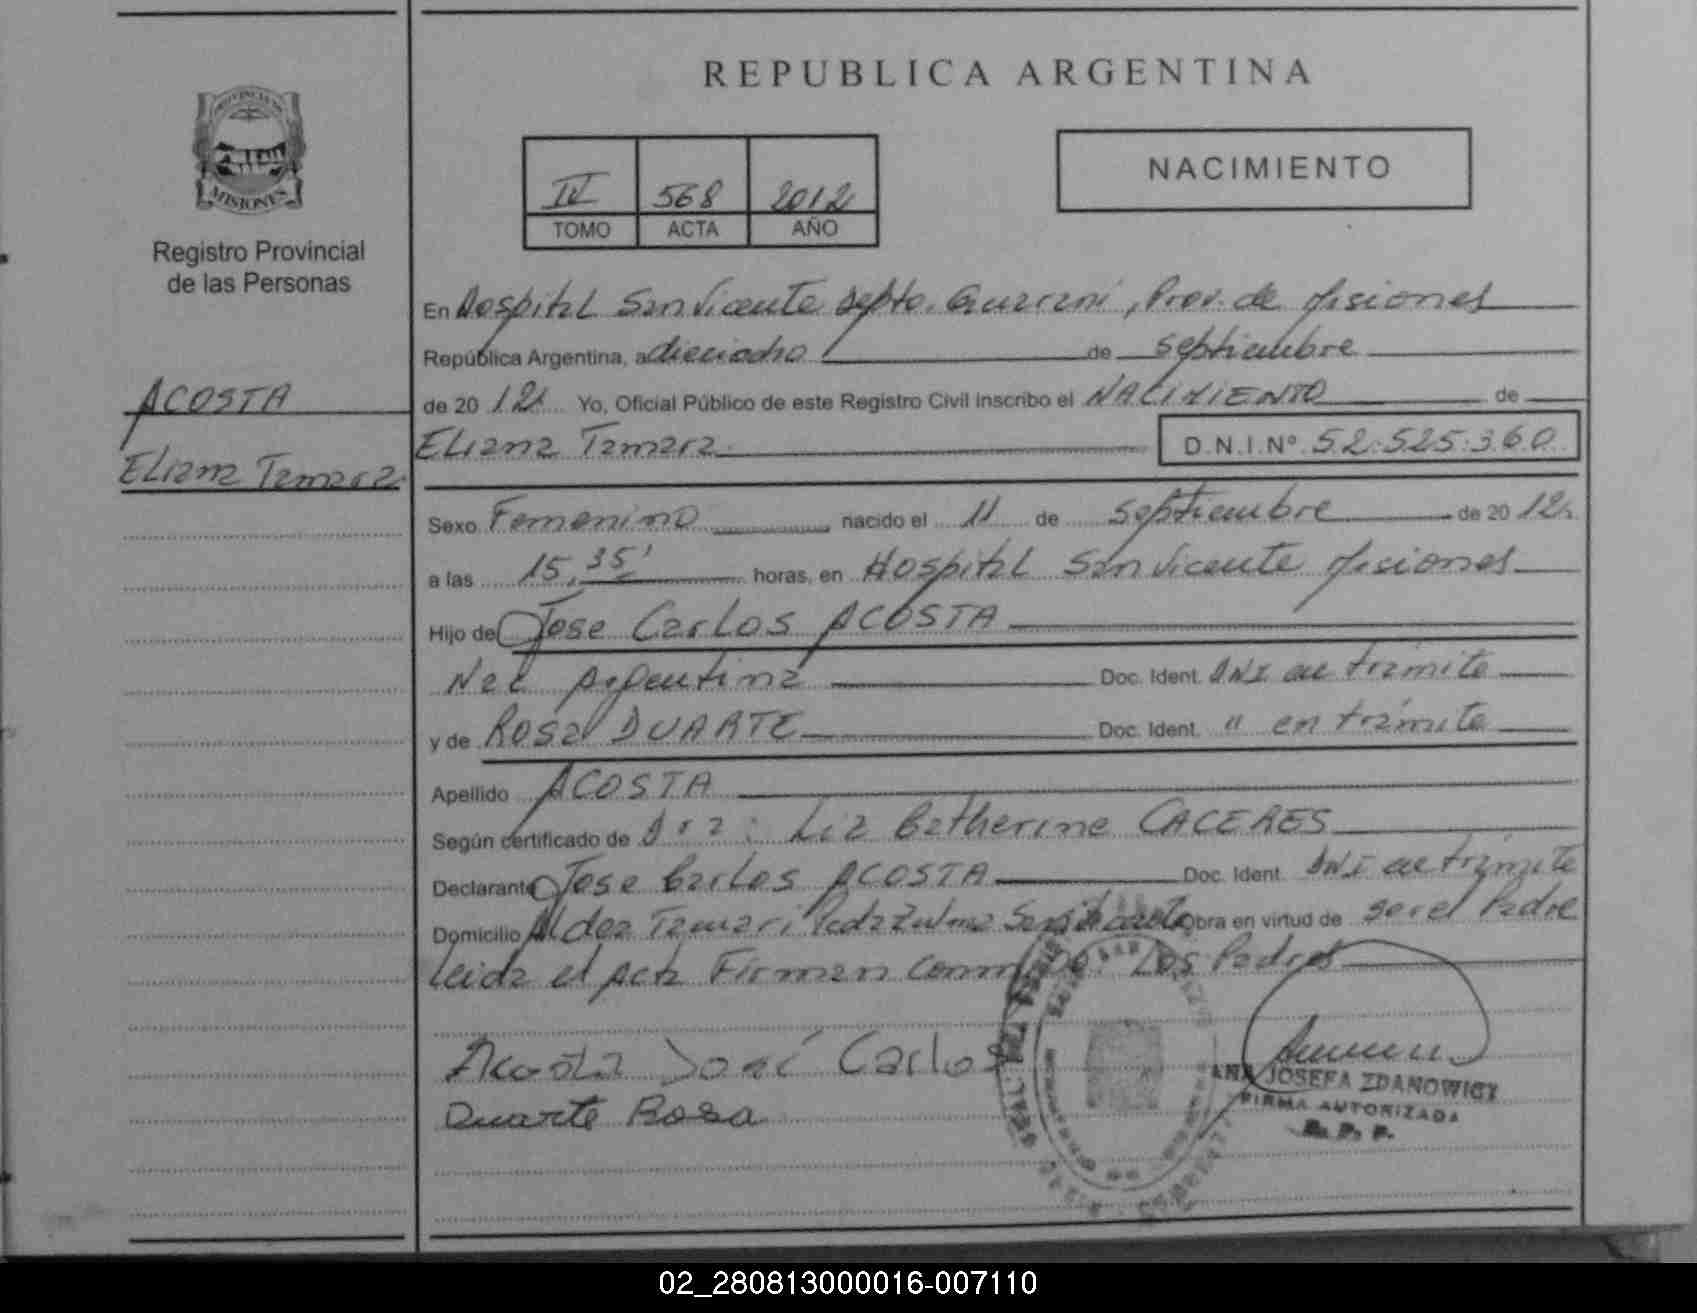 REPUBLICA ARGENTINA
PROVINCIA DE
MISIONES
Registro Provincial
de las Personas
IV 568 2012
TOMO ACTA AÑO
NACIMIENTO
En Hospital San Vicente Depto. Guarani, Prov. de Misiones
República Argentina, a dieciocho de septiembre
de 20 12 Yo, Oficial Público de este Registro Civil inscribo el NACIMIENTO de
ACOSTA
Eliana Tamara
Eliana Tamara D.N.I.Nº 52.525.360
Sexo Femenino nacido el 11 de septiembre de 20 12
a las 15,35' horas, en Hospital San Vicente Misiones
Hijo de Jose Carlos ACOSTA
Nac Argentina Doc. Ident. DNI en trámite
y de Rosa DUARTE Doc. Ident. " en trámite
Apellido ACOSTA
Según certificado de Dra: Liz Catherine CACERES
Declarante Jose Carlos ACOSTA Doc. Ident. DNI en trámite
Domicilio Aldea Tamari San Vicente Obra en virtud de ser el Padre
Leida el Acta Firman Conmigo. Los Padres
Acosta José Carlos
Duarte Rosa
ANA JOSEFA ZDANOWICZ
FIRMA AUTORIZADA
R. P. P.
02_280813000016-007110